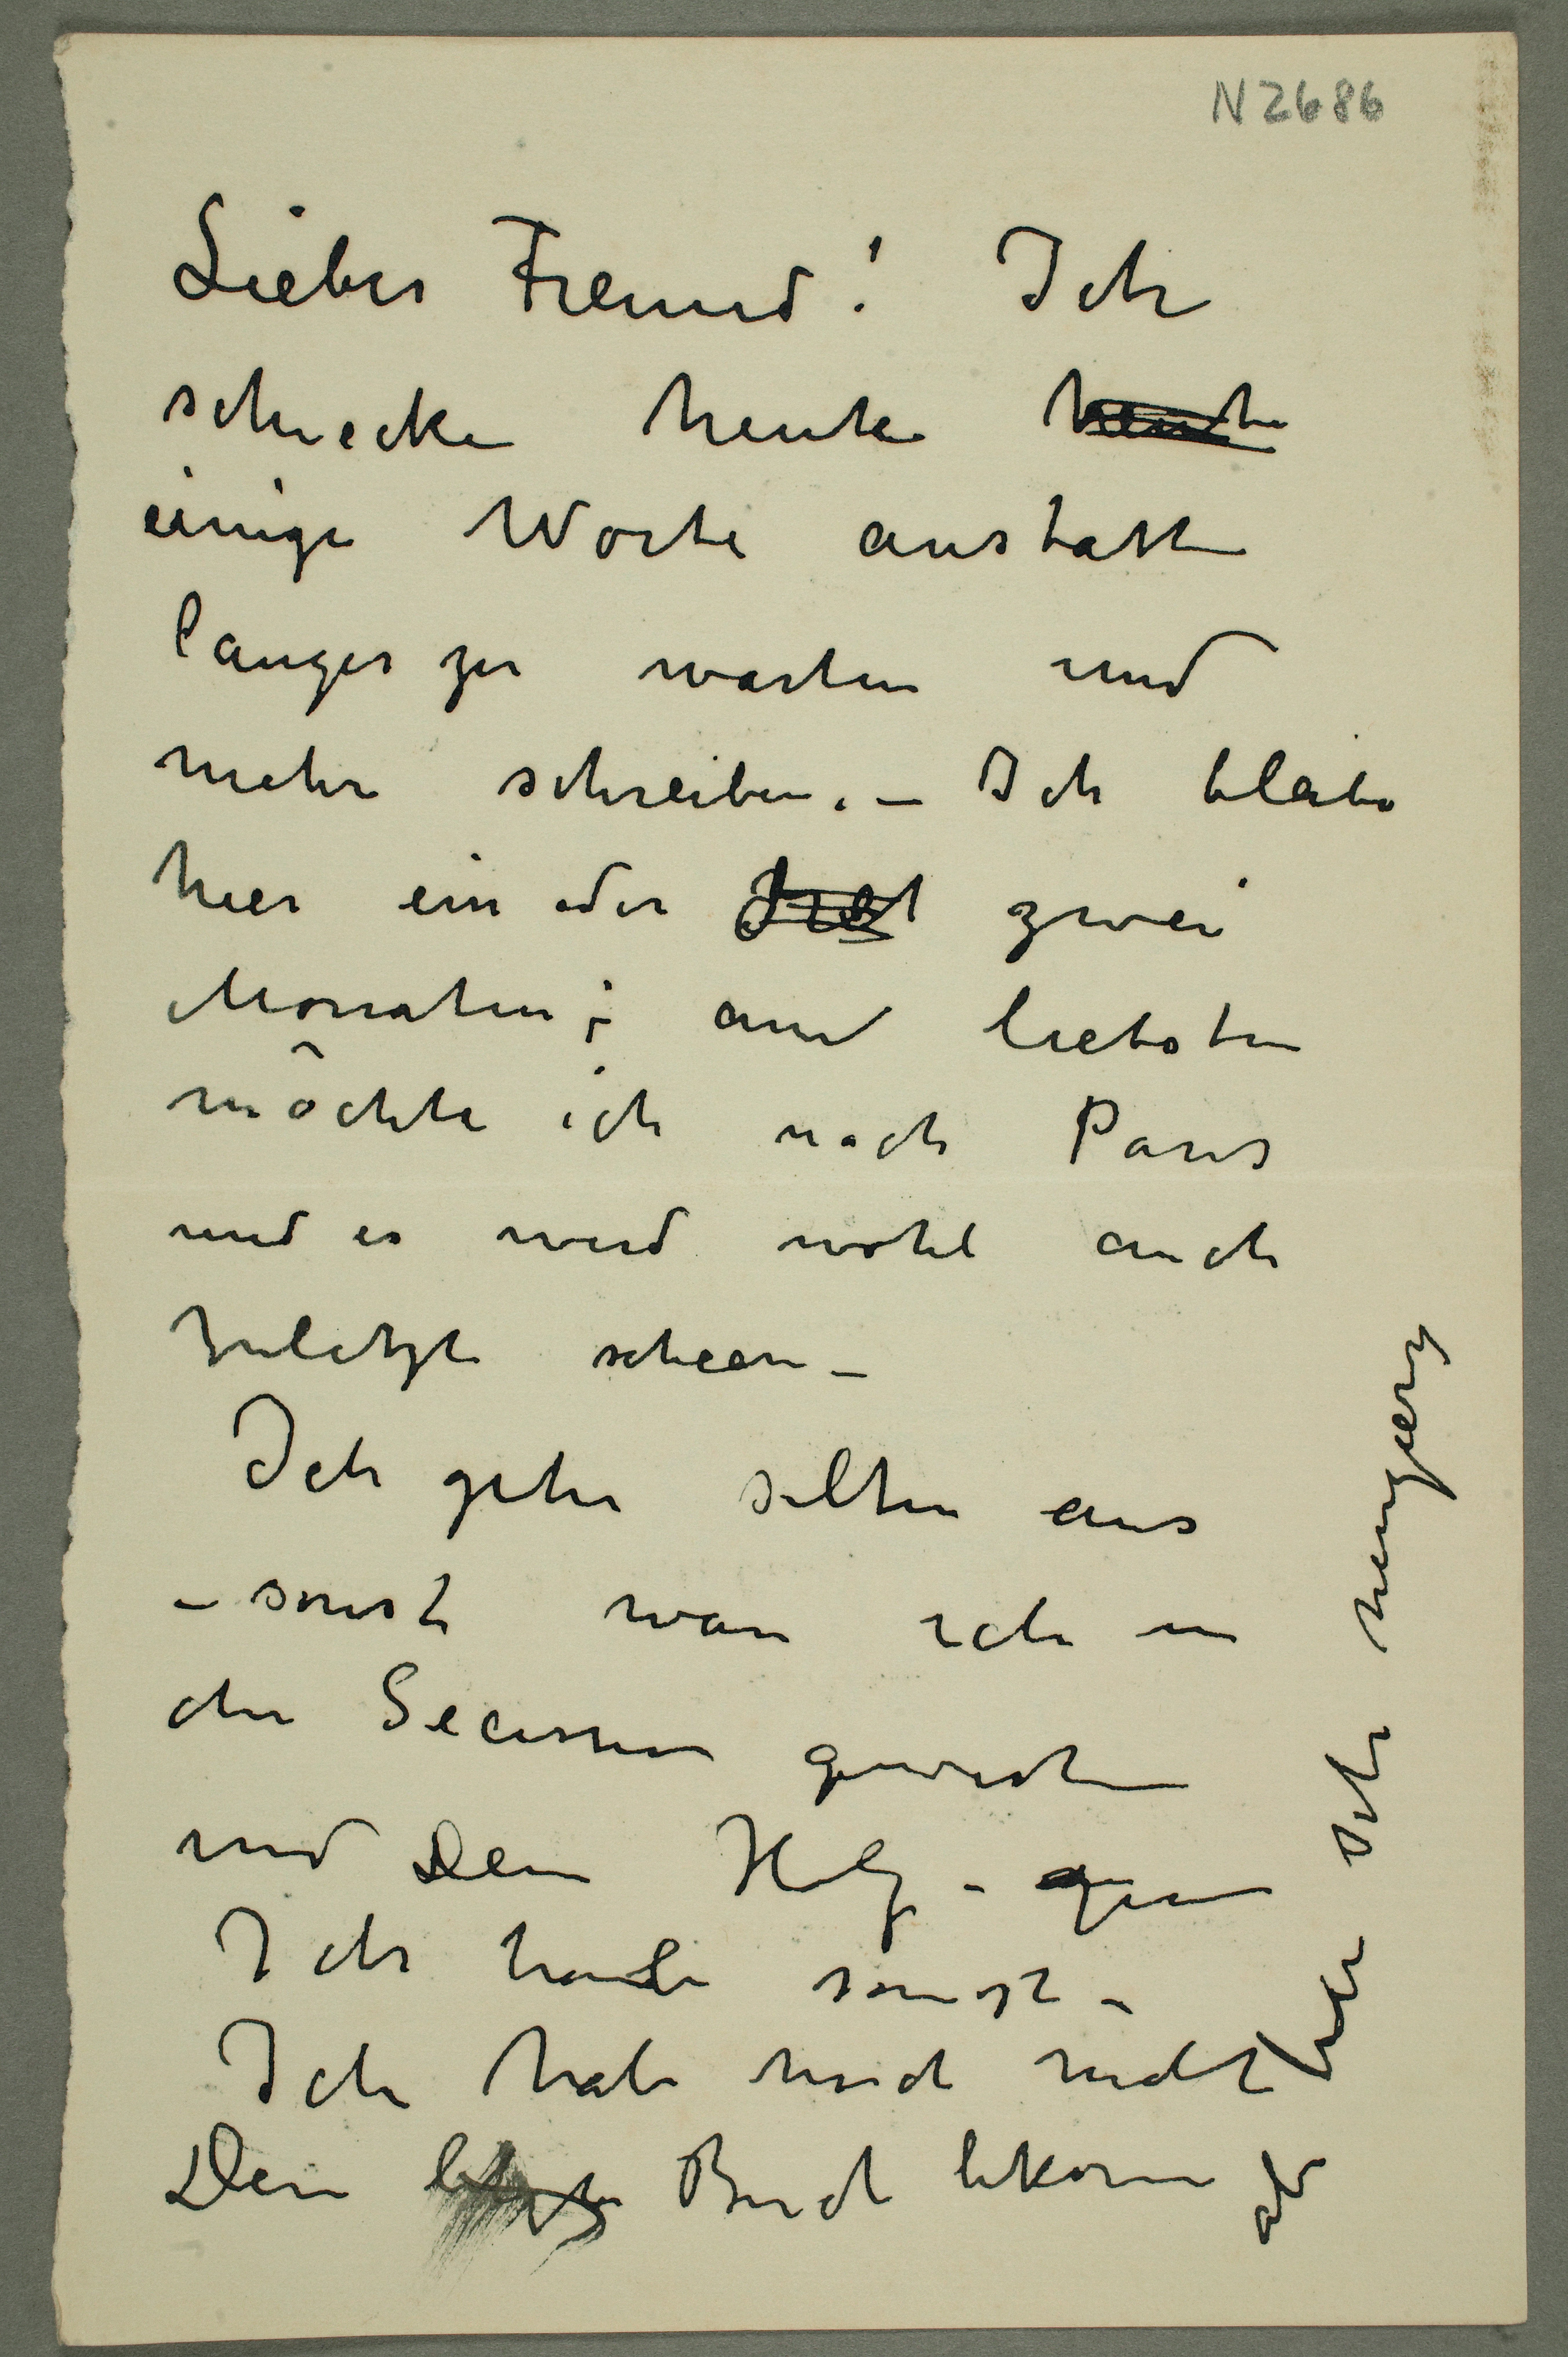 N 2686
Lieber Freund! Ich
schiecke heute heute
einige Worte anstatt
langer zu warten und
mehr schreiben. – Ich bleibe
hier ein oder zwei
Monaten; am liebsten
möchte ich nach Paris
und es wird wohl auch
zuletzt scheen –
Ich gehe selten aus
– sonst war ich in
der Secession gewesen
und Dein Holz –
Ich habe sonst –
Ich habe noch nicht
Dein letzte Buch bekom
sehr neugierig